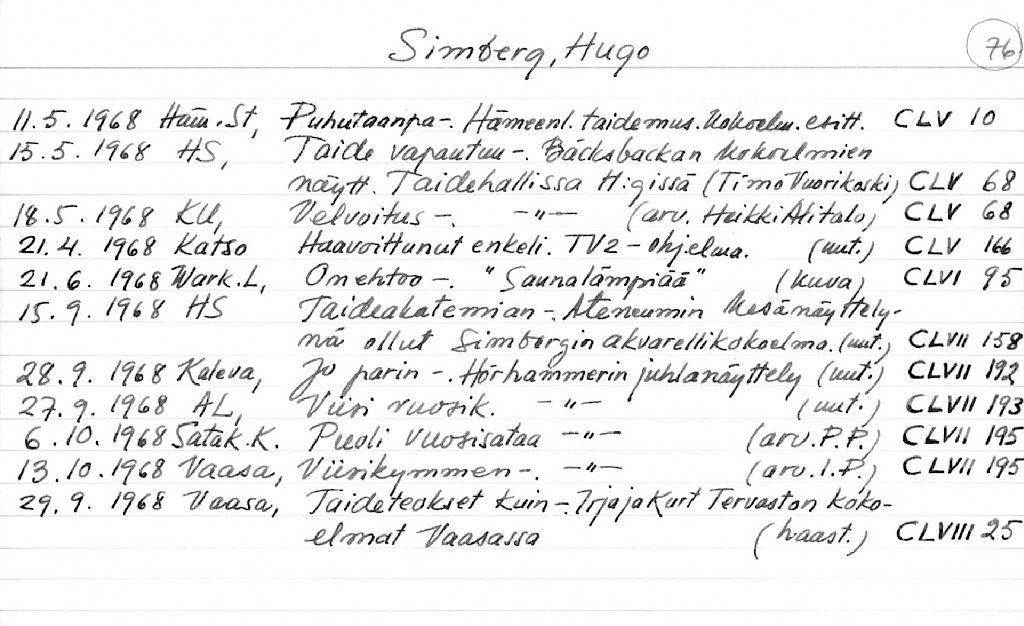 Simberg, Hugo 76
11.5.1968 Häm.St, Puhutaanpa-. Hämeenl. taidemus. kokoelm. esitt. CLV 10
15.5.1968 HS, Taide vapautuu-. Bäcksbackan kokoelmien
näytt. Taidehallissa H:gissä (Timo Vuorikoski) CLV 68
18.5.1968 KU, Velvoitus-. -"- (arv. Heikki Alitalo) CLV 68
21.4.1968 Katso Haavoittunut enkeli. TV2-ohjelma. (uut.) CLV 166
21.6.1968 Wark.L, On ehtoo-. "Saunalämpiää" (kuva) CLVI 95
15.9.1968 HS Taideakatemian-. Ateneumin kesänäyttely-
nä ollut Simbergin akvarellikokoelma. (uut.) CLVII 158
28.9.1968 Kaleva, Jo parin-. Hörhammerin juhlanäyttely (uut.) CLVII 192
27.9.1968 AL, Viisi vuosik. -"- (uut.) CLVII 193
6.10.1968 Satak.K. Puoli vuosisataa -"- (arv. P.P.) CLVII 195
13.10.1968 Vaasa, Viisikymmen-. -"- (arv. I.P.) CLVII 195
29.9.1968 Vaasa, Taideteokset kuin-. Irja ja Kurt Tervaston koko-
elmat Vaasassa (haast.) CLVIII 25